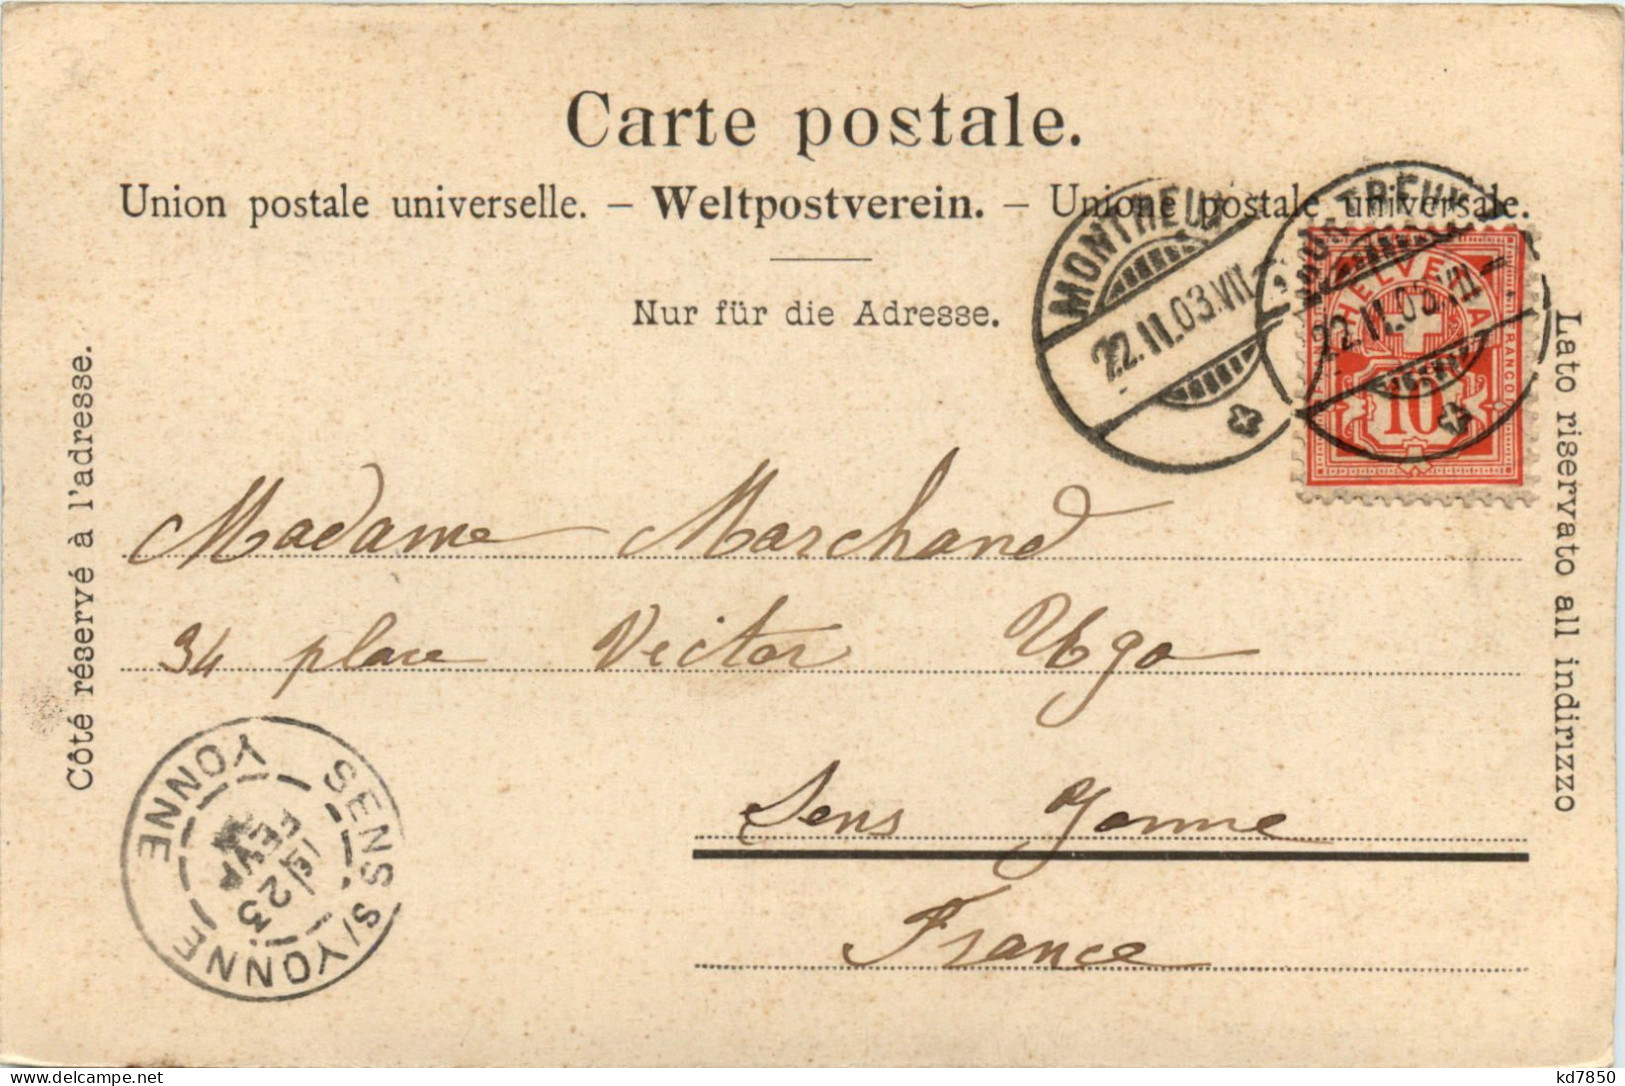 Carte postale.
Union postale universelle. – Weltpostverein. – Unione postale universale.
Nur für die Adresse.
Côté réservé à l'adresse.
Lato riservato all indirizzo
MONTREUX
22.II.03.VII
MONTREUX
22.II.03.VII
HELVETIA
FRANCO
10
Madame Marchand
34 place Victor Ugo
Sens Yonne
France
SENS S/YONNE
YONNE
23
FEVR
kd7850